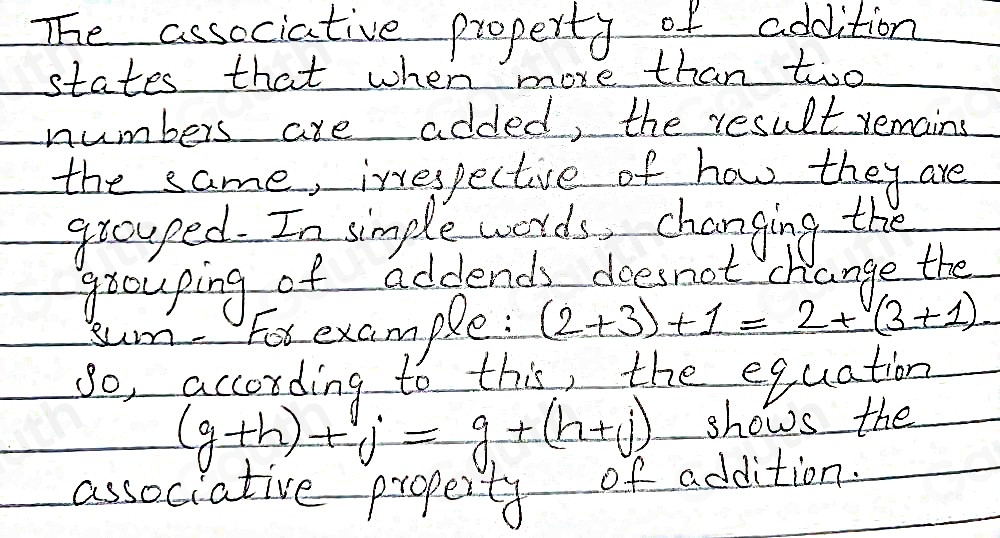 The associative property of addition
states that when more than two
numbers are added, the result remains
the same, irrespective of how they are
grouped. In simple words, changing the
grouping of addends doesnot change the
sum. For example: (2+3)+1 = 2+(3+1)
So, according to this, the equation
(g+h)+j = g+(h+j) shows the
associative property of addition.